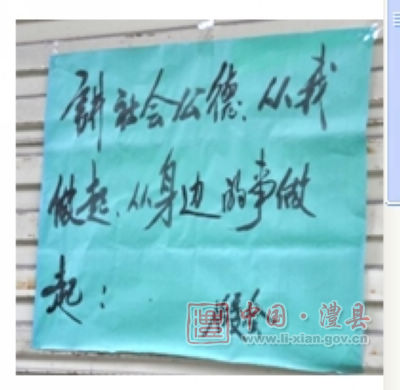 讲社会公德、从我
做起、从身边的事做
起：
中国·澧县
www.li-xian.gov.cn